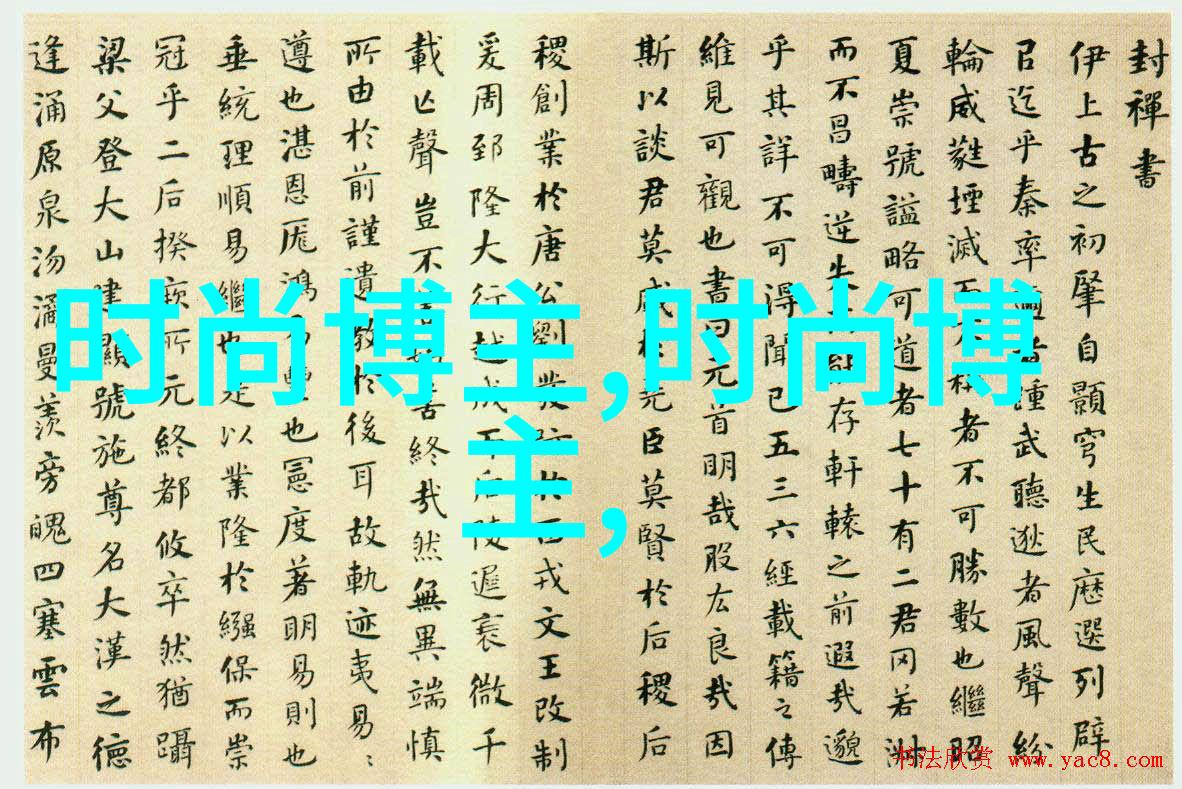 封禪書
伊上古之初肇自顥穹生民歷選列辟
以迄乎秦率邇者踵武聽逖者風聲紛
輪威蕤堙滅而不稱者不可勝數也繼昭
夏崇號謚略可道者七十有二君罔若淑
而不昌疇逆失而能存軒轅之前遐哉邈
乎其詳不可得聞已五三六經載籍之傳
維見可觀也書曰元首明哉股厷良哉因
斯以談君莫盛於堯臣莫賢於后稷后
稷創業於唐公劉發跡於西戎文王改制
爰周郅隆大行越成而后陵遲衰微千
載亡聲豈不善始善終哉然無異端慎
所由於前謹遺教於後耳故軌迹夷易
遵也湛恩厖鴻易豐也憲度著明易則也
垂統理順易繼也是以業隆於繈保而崇
冠乎二后揆厥所元終都攸卒然猶躡
梁父登大山建顯號施尊名大漢之德
逢涌原泉沕潏曼羨旁魄四塞雲布
时尚博主,时尚博
主,
书法欣赏 www.yac8.com